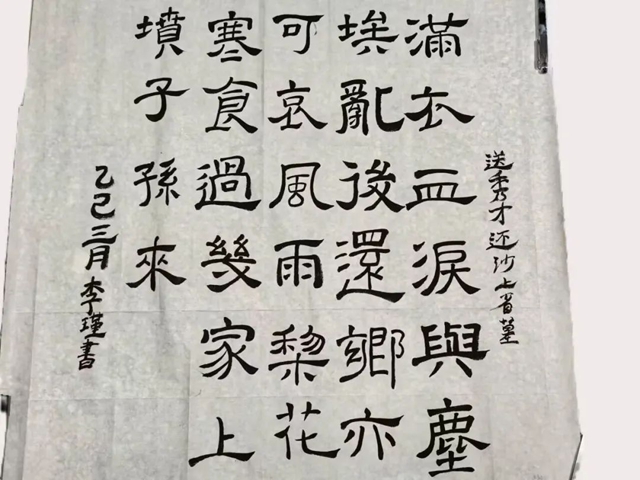 送秀才还沙上省墓
滿衣血淚與塵
埃亂後還鄉亦
可哀風雨梨花
寒食過幾家上
墳子孫來
乙巳三月李瑾書